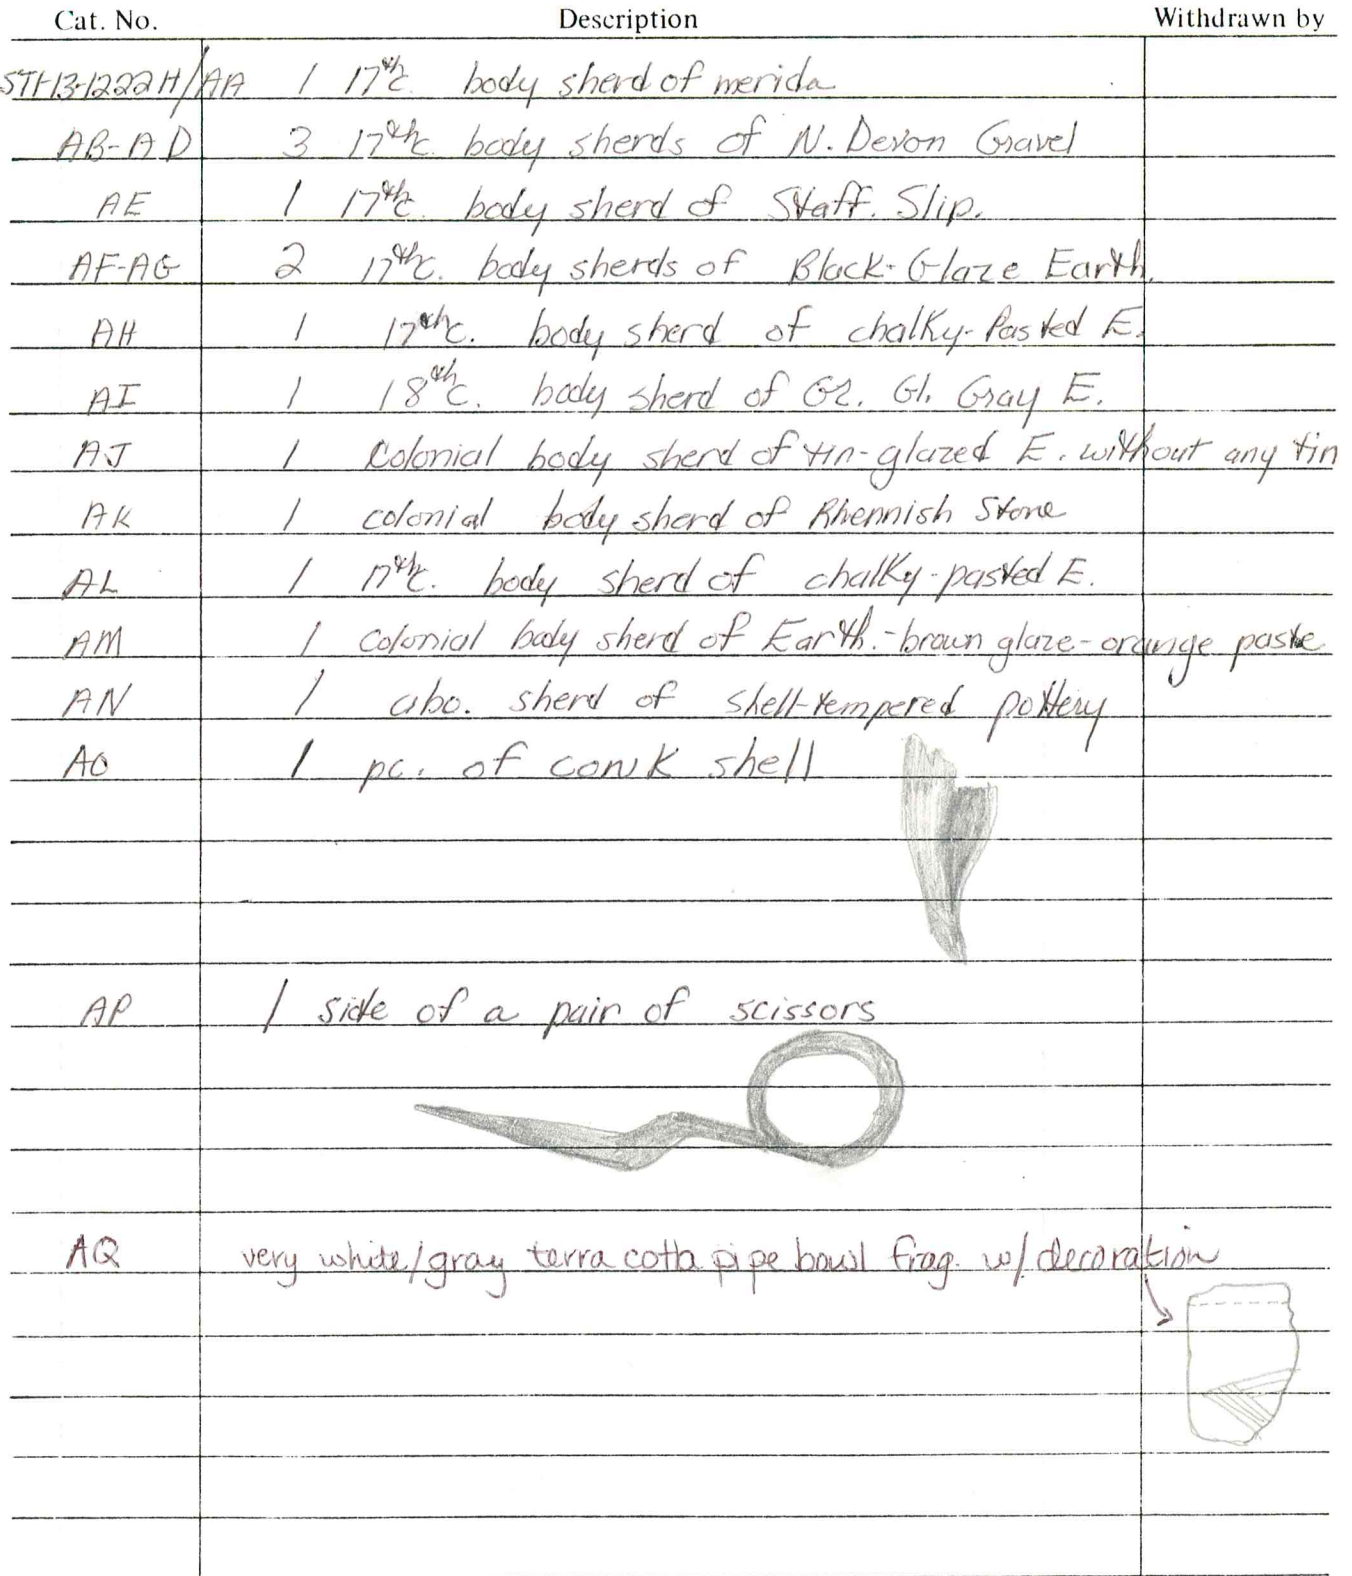 Cat. No. Description Withdrawn by
ST1-13-1222H/AA 1 17th c. body sherd of merida
AB-AD 3 17th c. body sherds of N. Devon Gravel
AE 1 17th c. body sherd of Staff. Slip.
AF-AG 2 17th c. body sherds of Black-Glaze Earth.
AH 1 17th c. body sherd of chalky-Pasted E.
AI 1 18th c. body sherd of Gr. Gl. Gray E.
AJ 1 Colonial body sherd of tin-glazed E. without any tin
AK 1 colonial body sherd of Rhennish Stone
AL 1 17th c. body sherd of chalky-pasted E.
AM 1 colonial body sherd of Earth.-brown glaze-orange paste
AN 1 abo. sherd of shell-tempered pottery
AO 1 pc. of conk shell
AP 1 side of a pair of scissors
AQ very white/gray terra cotta pipe bowl frag. w/ decoration